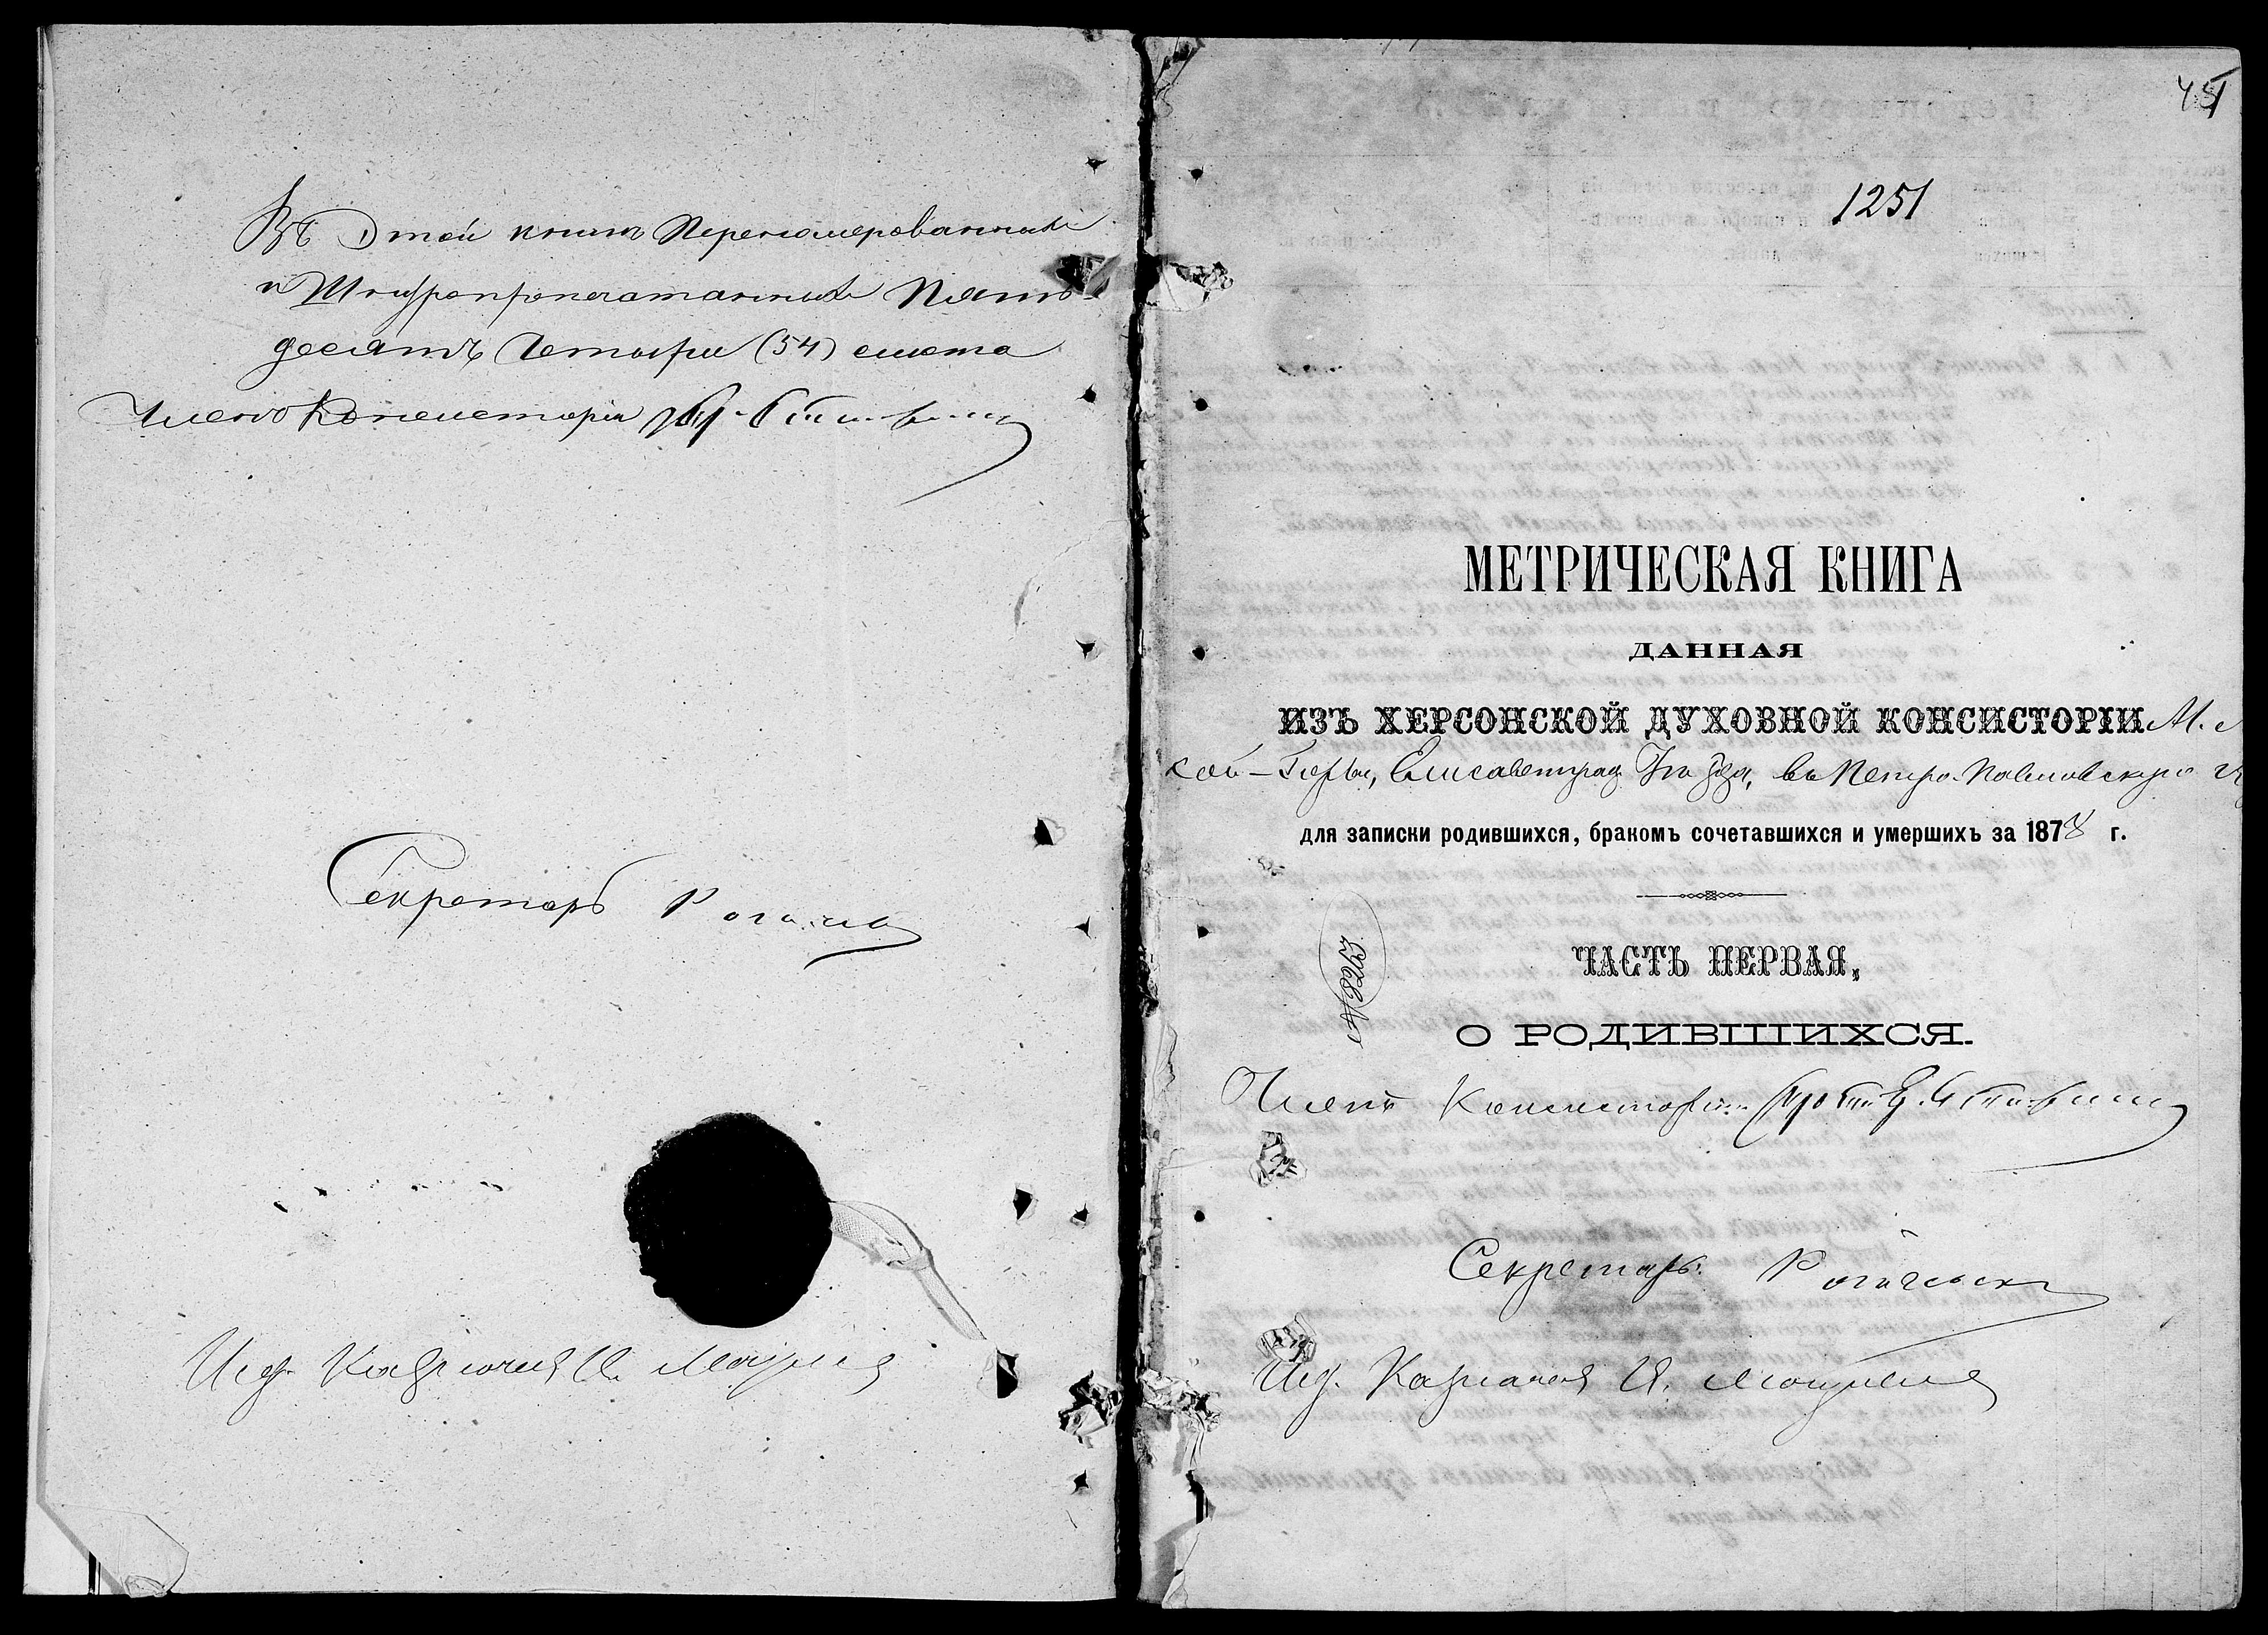 Въ Этой книгѣ Перенумерованныхъ
и Шнуропрепечатанныхъ Пять-
десятъ Четыре (54) листа
Членъ Консисторіи
Секретарь
Исд. Казначея И.
1251
МЕТРИЧЕСКАЯ КНИГА
ДАННАЯ
ИЗЪ ХЕРСОНСКОЙ ДУХОВНОЙ КОНСИСТОРІИ М.
кой-Горы, Елисаветград. Уѣзда, въ Петро-Павловскую
для записки родившихся, бракомъ сочетавшихся и умершихъ за 1878 г.
№ 8253
ЧАСТЬ ПЕРВАЯ,
О РОДИВШИХСЯ.
Членъ Консисторіи
Секретарь
Исд. Казначея И.